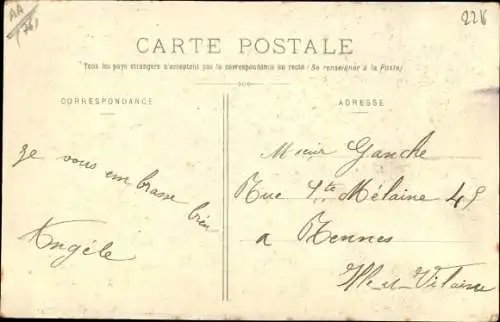 AA
761
2216
CARTE POSTALE
Tous les pays étrangers n'acceptent pas la correspondance au recto (Se renseigner à la Poste)
CORRESPONDANCE
ADRESSE
Je vous em brasse bien
Angéle
Mosieur Ganche
Rue Ste Mélaine 45
a Rennes
Ille-et-Vilaine